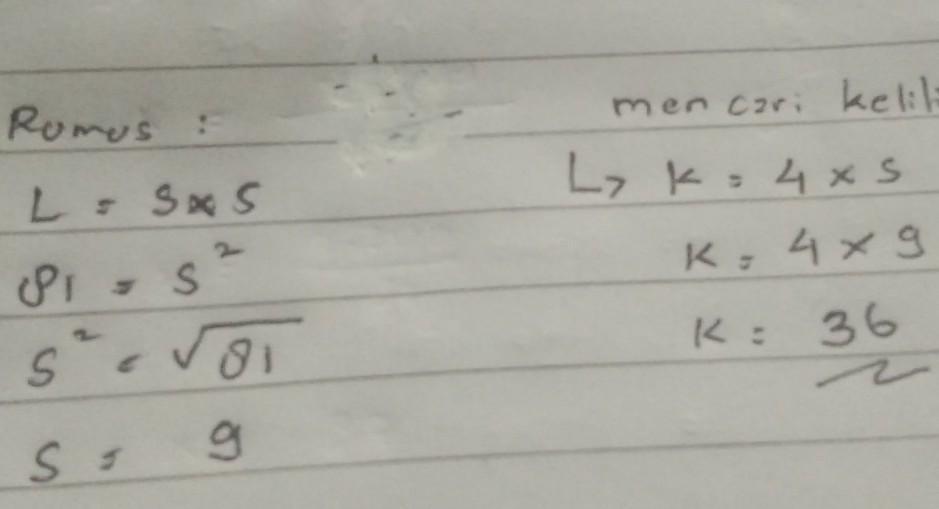 Rumus :
L = s x s
81 = s²
s² = √81
s = 9
mencari kelili
L> K = 4 x s
K = 4 x 9
K = 36